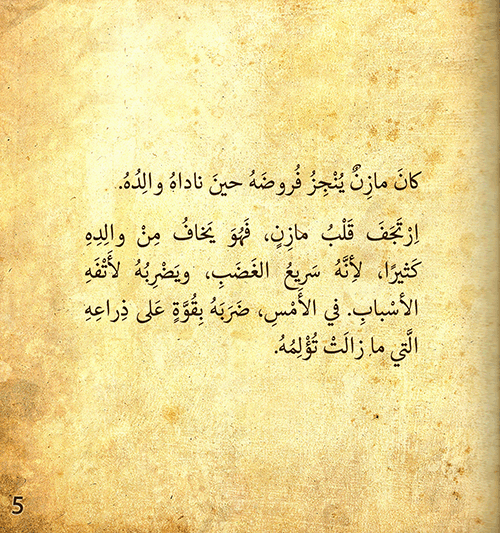 كانَ مازِنٌ يُنْجِزُ فُروضَهُ حينَ ناداهُ والِدُهُ.
اِرْتَجَفَ قَلْبُ مازِنٍ، فَهُوَ يَخافُ مِنْ والِدِهِ
كَثيرًا، لأَنَّهُ سَريعُ الغَضَبِ، ويَضْرِبُهُ لأَتْفَهِ
الأسْبابِ. في الأَمْسِ، ضَرَبَهُ بِقُوَّةٍ عَلى ذِراعِهِ
الَّتي ما زالَتْ تُؤْلِمُهُ.
5